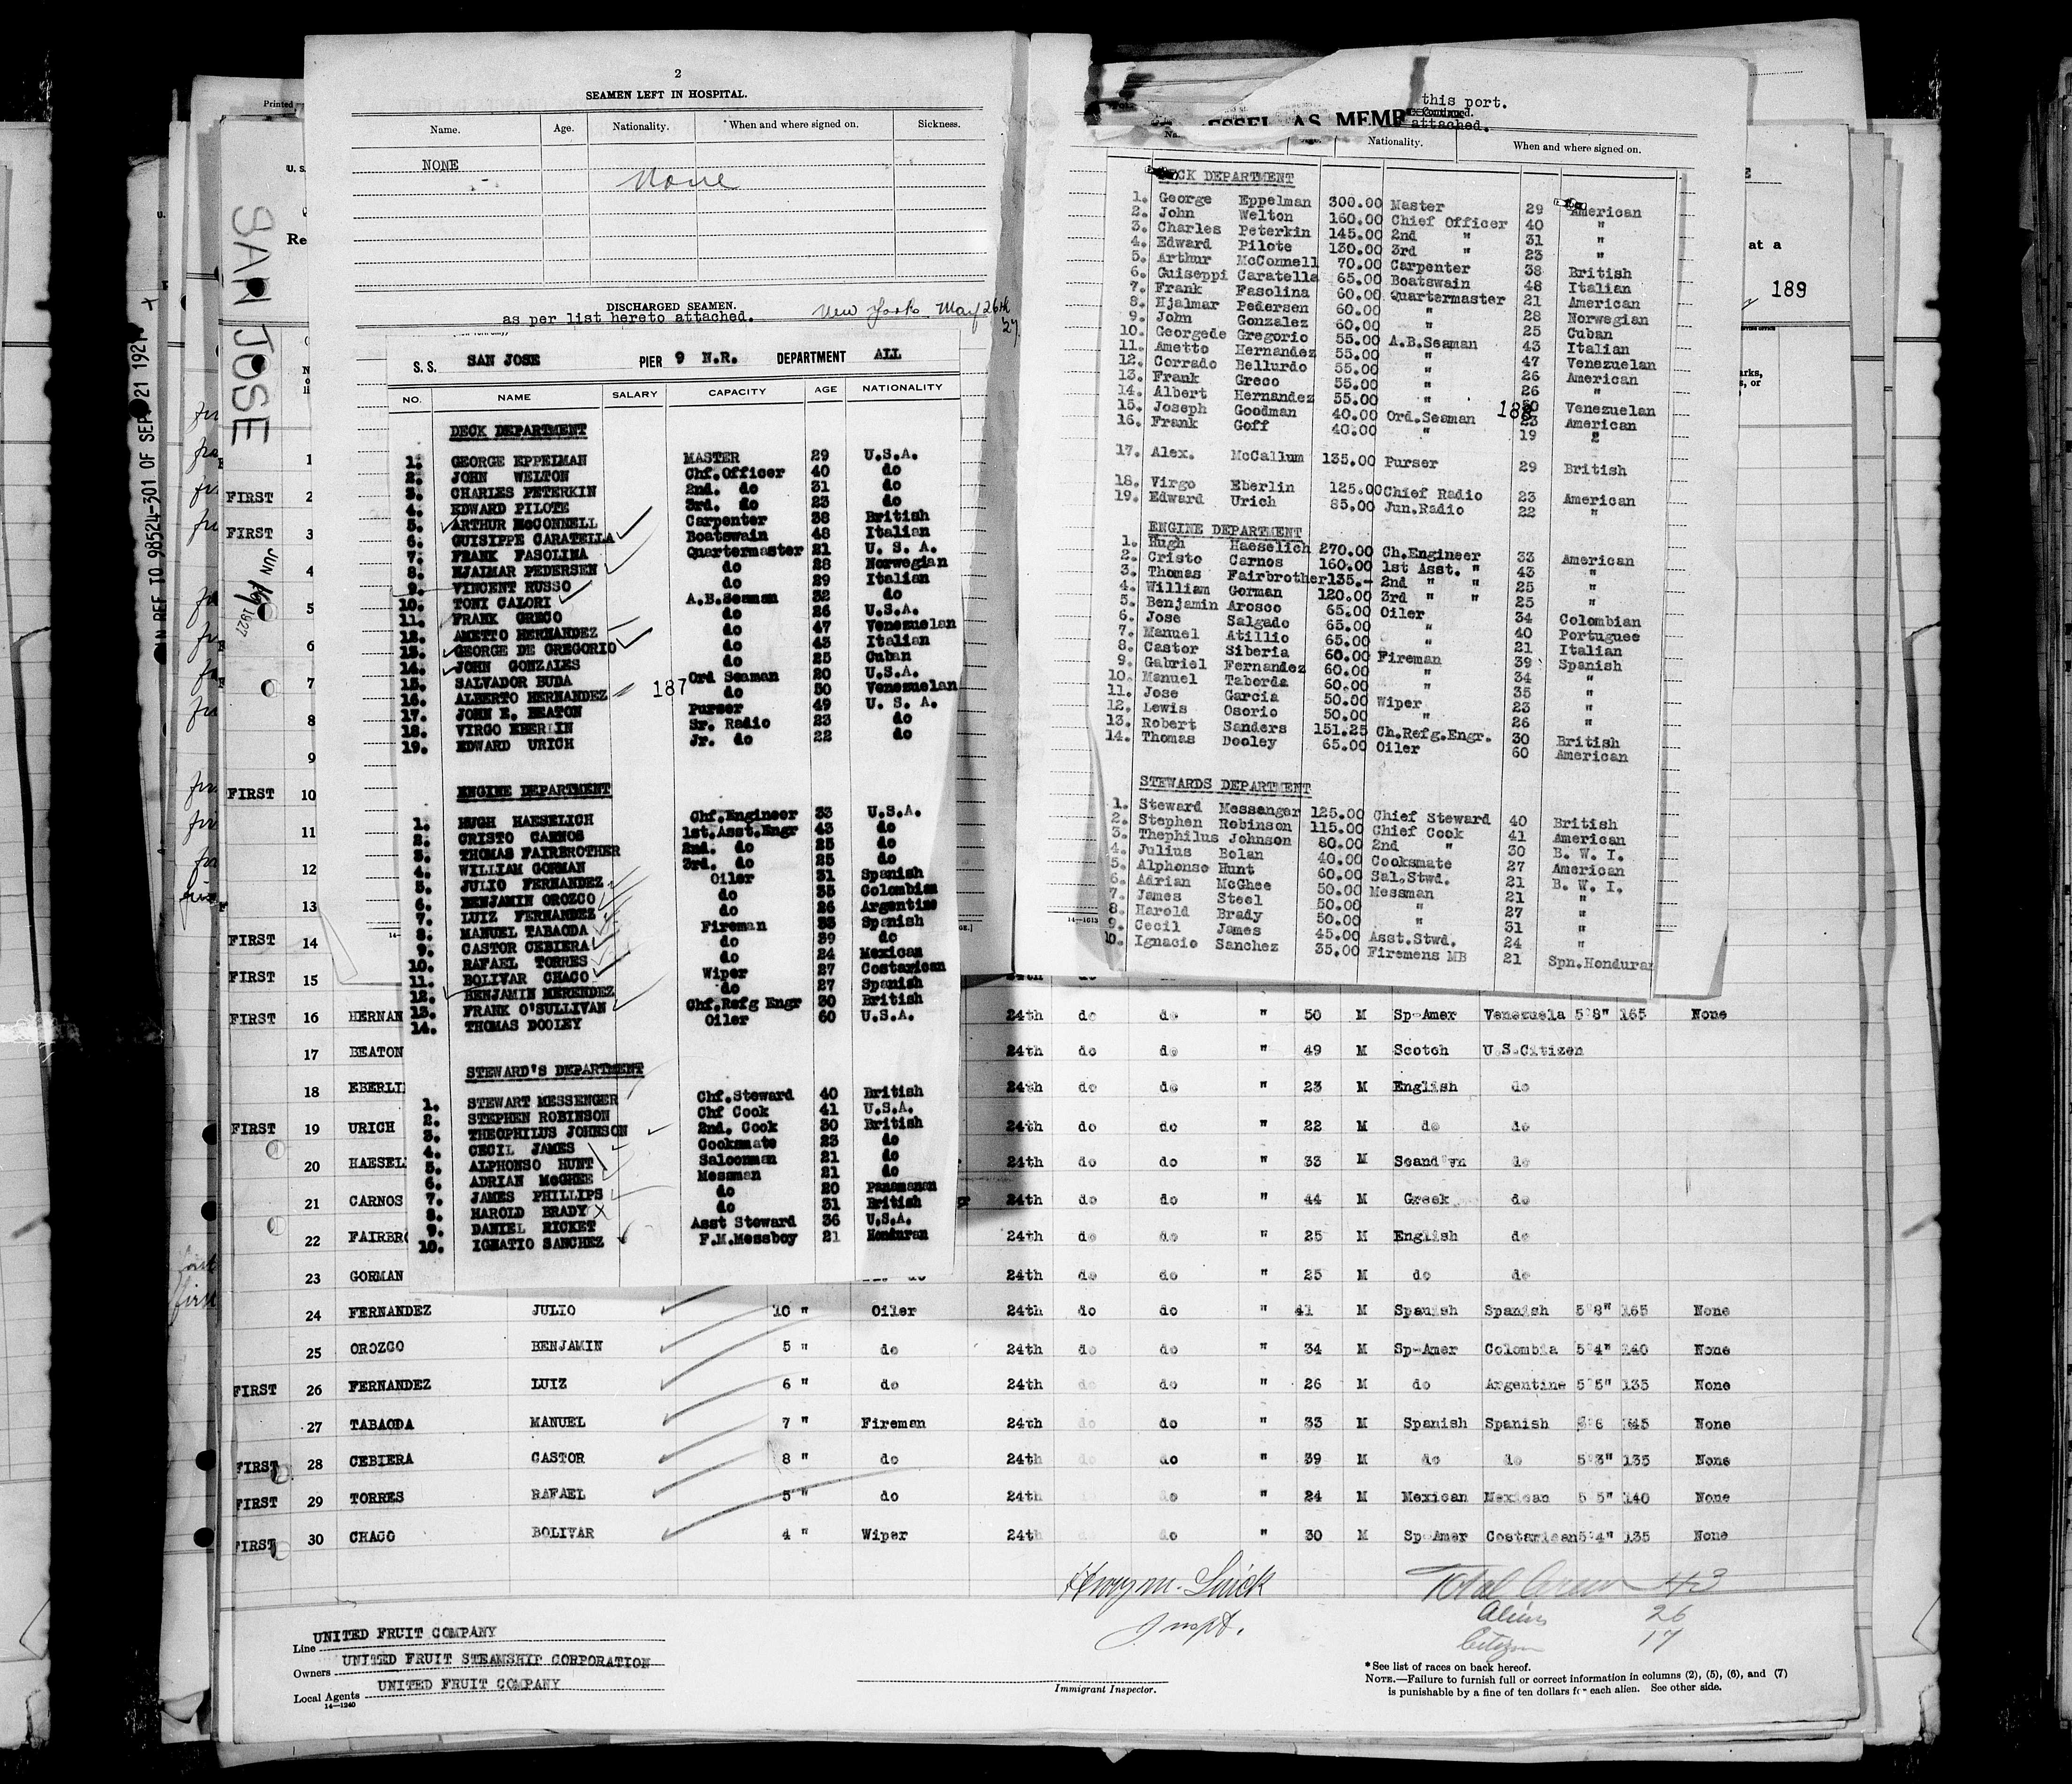 2
SEAMEN LEFT IN HOSPITAL.
Name. Age. Nationality. When and where signed on. Sickness.
NONE
None
DISCHARGED SEAMEN.
as per list hereto attached. New York May 26th 27.
S. S. SAN JOSE PIER 9 N.R. DEPARTMENT ALL
NO. NAME SALARY CAPACITY AGE NATIONALITY
DECK DEPARTMENT
1. GEORGE EPPELMAN MASTER 29 U.S.A.
2. JOHN WELTON Chf.Officer 40 do
3. CHARLES PETERKIN 2nd. do 31 do
4. EDWARD PILOTE 3rd. do 23 do
5. ARTHUR McCONNELL Carpenter 38 British
6. GUISIPPE CARATELLA Boatswain 48 Italian
7. FRANK FASOLINA Quartermaster 21 U. S. A.
8. HJALMAR PEDERSEN do 28 Norwegian
9. VINCENT RUSSO do 29 Italian
10. TONI CALORI A.B.Seaman 32 do
11. FRANK GRECO do 26 U.S.A.
12. AMETTO HERNANDEZ do 47 Venezuelan
13. GEORGE DE GREGORIO do 43 Italian
14. JOHN GONZALES do 25 Cuban
15. SALVADOR BUDA Ord Seaman 20 U.S.A.
16. ALBERTO HERNANDEZ 187 do 50 Venezuelan
17. JOHN E. BEATON Purser 49 U. S. A.
18. VIRGO EBERLIN Sr. Radio 23 do
19. EDWARD URICH Jr. do 22 do
ENGINE DEPARTMENT
1. HUGH HAESELICH Chf.Engineer 33 U.S.A.
2. CRISTO CARNOS 1st.Asst.Engr 43 do
3. THOMAS FAIRBROTHER 2nd. do 25 do
4. WILLIAM GORMAN 3rd. do 25 do
5. JULIO FERNANDEZ Oiler 31 Spanish
6. BENJAMIN OROZCO do 35 Colombian
7. LUIZ FERNANDEZ do 26 Argentine
8. MANUEL TABAODA Fireman 33 Spanish
9. CASTOR CEBIERA do 39 do
10. RAFAEL TORRES do 24 Mexican
11. BOLIVAR CHACO Wiper 27 Costarican
12. BENJAMIN MERENDEZ do 27 Spanish
13. FRANK O'SULLIVAN Chf.Refg Engr 30 British
14. THOMAS DOOLEY Oiler 60 U.S.A.
STEWARD'S DEPARTMENT
1. STEWART MESSENGER Chf.Steward 40 British
2. STEPHEN ROBINSON Chf Cook 41 U.S.A.
3. THEOPHILUS JOHNSON 2nd. Cook 30 British
4. CECIL JAMES Cooksmate 23 do
5. ALPHONSO HUNT Saloonman 21 do
6. ADRIAN McGHEE Messman 21 do
7. JAMES PHILLIPS do 20 Panamanan
8. HAROLD BRADY do 31 British
9. DANIEL RICKET Asst Steward 36 U.S.A.
10. IGNATIO SANCHEZ F.M.Messboy 21 Honduran
this port.
attached.
VESSEL AS MEMB
Nationality. When and where signed on.
DECK DEPARTMENT
1. George Eppelman 300.00 Master 29 American
2. John Welton 160.00 Chief Officer 40 "
3. Charles Peterkin 145.00 2nd " 31 "
4. Edward Pilote 130.00 3rd " 23 "
5. Arthur McConnell 70.00 Carpenter 38 British
6. Guiseppi Caratella 65.00 Boatswain 48 Italian
7. Frank Fasolina 60.00 Quartermaster 21 American
8. Hjalmar Pedersen 60.00 " 28 Norwegian
9. John Gonzalez 60.00 " 25 Cuban
10. Georgede Gregorio 55.00 A.B.Seaman 43 Italian
11. Ametto Hernandez 55.00 " 47 Venezuelan
12. Corrado Bellurdo 55.00 " 26 American
13. Frank Greco 55.00 " 26 "
14. Albert Hernandez 55.00 " 50 Venezuelan
15. Joseph Goodman 40.00 Ord.Seaman 188 23 American
16. Frank Goff 40.00 " 19 "
17. Alex. McCallum 135.00 Purser 29 British
18. Virgo Eberlin 125.00 Chief Radio 23 American
19. Edward Urich 85.00 Jun.Radio 22 "
ENGINE DEPARTMENT
1. Hugh Haeselich 270.00 Ch.Engineer 33 American
2. Cristo Carnos 160.00 1st Asst. " 43 "
3. Thomas Fairbrother 135.- 2nd " " 25 "
4. William Gorman 120.00 3rd " " 25 "
5. Benjamin Arosco 65.00 Oiler 34 Colombian
6. Jose Salgado 65.00 " 40 Portuguee
7. Manuel Atillio 65.00 " 21 Italian
8. Castor Siberia 60.00 Fireman 39 Spanish
9. Gabriel Fernandez 60.00 " 34 "
10. Manuel Taborda 60.00 " 35 "
11. Jose Garcia 50.00 Wiper 23 "
12. Lewis Osorio 50.00 " 26 "
13. Robert Sanders 151.25 Ch.Refg.Engr. 30 British
14. Thomas Dooley 65.00 Oiler 60 American
STEWARDS DEPARTMENT
1. Steward Messenger 125.00 Chief Steward 40 British
2. Stephen Robinson 115.00 Chief Cook 41 American
3. Thephilus Johnson 80.00 2nd " 30 B. W. I.
4. Julius Bolan 40.00 Cooksmate 27 American
5. Alphonso Hunt 60.00 Sal.Stwd. 21 B. W. I.
6. Adrian McGhee 50.00 Messman 21 "
7. James Steel 50.00 " 27 "
8. Harold Brady 50.00 " 31 "
9. Cecil James 45.00 Asst.Stwd. 24 "
10. Ignacio Sanchez 35.00 Firemens MB 21 Spn.Honduran
at a
189
Printed
U. S.
Re
SAN JOSE
N REF TO 98524-301 OF SEP 21 1921
JUN 1927
1
FIRST 2
FIRST 3
4
5
6
7
8
9
FIRST 10
11
12
13
FIRST 14
FIRST 15
FIRST 16 HERNAN 24th do do " 50 M Sp-Amer Venezuela 5'8" 165 None
17 BEATON 24th do do " 49 M Scotch U.S.Citizen
18 EBERLI 24th do do " 23 M English do
FIRST 19 URICH 24th do do " 22 M do do
20 HAESEL 24th do do " 33 M Scand'vn do
21 CARNOS 24th do do " 44 M Greek do
22 FAIRBRO 24th do do " 25 M English do
23 GORMAN 24th do do " 25 M do do
24 FERNANDEZ JULIO 10 " Oiler 24th do do " 41 M Spanish Spanish 5'8" 165 None
25 OROZCO BENJAMIN 5 " do 24th do do " 34 M Sp-Amer Colombia 5'4" 140 None
FIRST 26 FERNANDEZ LUIZ 6 " do 24th do do " 26 M do Argentine 5'5" 135 None
27 TABAODA MANUEL 7 " Fireman 24th do do " 33 M Spanish Spanish 5'6 145 None
FIRST 28 CEBIERA CASTOR 8 " do 24th do do " 39 M do do 5'3" 135 None
FIRST 29 TORRES RAFAEL 5 " do 24th do " 24 M Mexican Mexican 5'5" 140 None
FIRST 30 CHACO BOLIVAR 4 " Wiper 24th do " 30 M Sp Amer Costarican 5'4" 135 None
Total Crew 43
Aliens 26
Citizen 17
Inspt.
Line UNITED FRUIT COMPANY
Owners UNITED FRUIT STEAMSHIP CORPORATION
Local Agents UNITED FRUIT COMPANY
14—1240
Immigrant Inspector.
* See list of races on back hereof.
NOTE.—Failure to furnish full or correct information in columns (2), (5), (6), and (7)
is punishable by a fine of ten dollars for each alien. See other side.